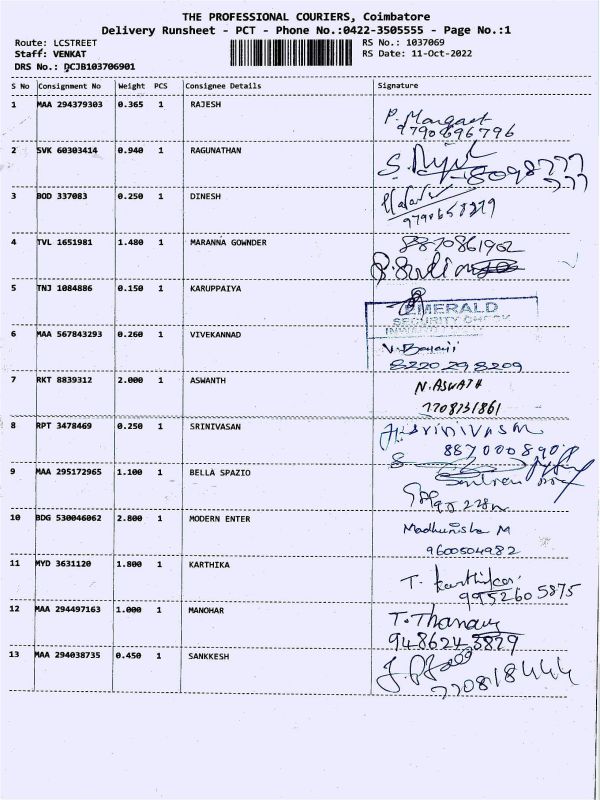 THE PROFESSIONAL COURIERS, Coimbatore
Delivery Runsheet - PCT - Phone No.:0422-3505555 - Page No.:1
Route: LCSTREET RS No.: 1037069
Staff: VENKAT RS Date: 11-Oct-2022
DRS No.: DCJB103706901
S No Consignment No Weight PCS Consignee Details Signature
1 MAA 294379303 0.365 1 RAJESH
P. Margaet
9790696796
2 SVK 60303414 0.940 1 RAGUNATHAN
8098777
777
3 BOD 337083 0.250 1 DINESH
4 TVL 1651981 1.480 1 MARANNA GOWNDER
8870861902
5 TNJ 1084886 0.150 1 KARUPPAIYA
EMERALD
SECURITY CHECK
6 MAA 567843293 0.260 1 VIVEKANNAD
V. Banaji
8220298209
7 RKT 8839312 2.000 1 ASWANTH
N. ASWATH
7708731861
8 RPT 3478469 0.250 1 SRINIVASAN
Srinivasan
9 MAA 295172965 1.100 1 BELLA SPAZIO
10 BDG 530046062 2.800 1 MODERN ENTER
Madhunisha M
9600504982
11 MYD 3631120 1.800 1 KARTHIKA
T. Karthikai
9952605875
12 MAA 294497163 1.000 1 MANOHAR
9486243829
13 MAA 294038735 0.450 1 SANKKESH
770818444